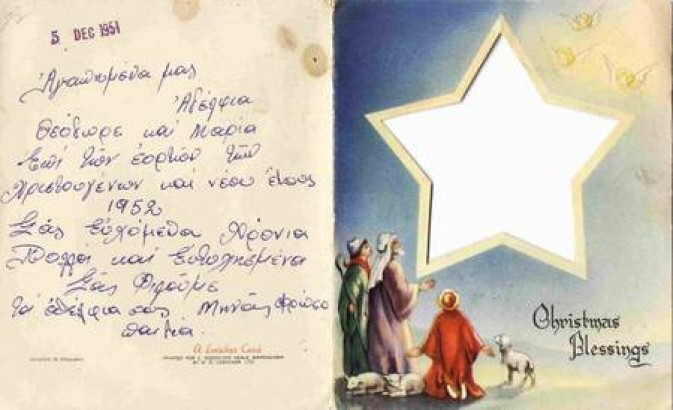 5 DEC 1951
Αγαπιμέθα μας
Αδέλφια
Θεόδωρε και Μαρία
Επί των εορτών των
Χριστουγένων και νέου έτους
1952
Σας Ευχόμεθα Χρόνια
Πολλά και Ευτυχησμένα
Σας Φιλούμε
τα αδέλφια σας Μηνάς Φρόσο
παιδιά.
Christmas
Blessings